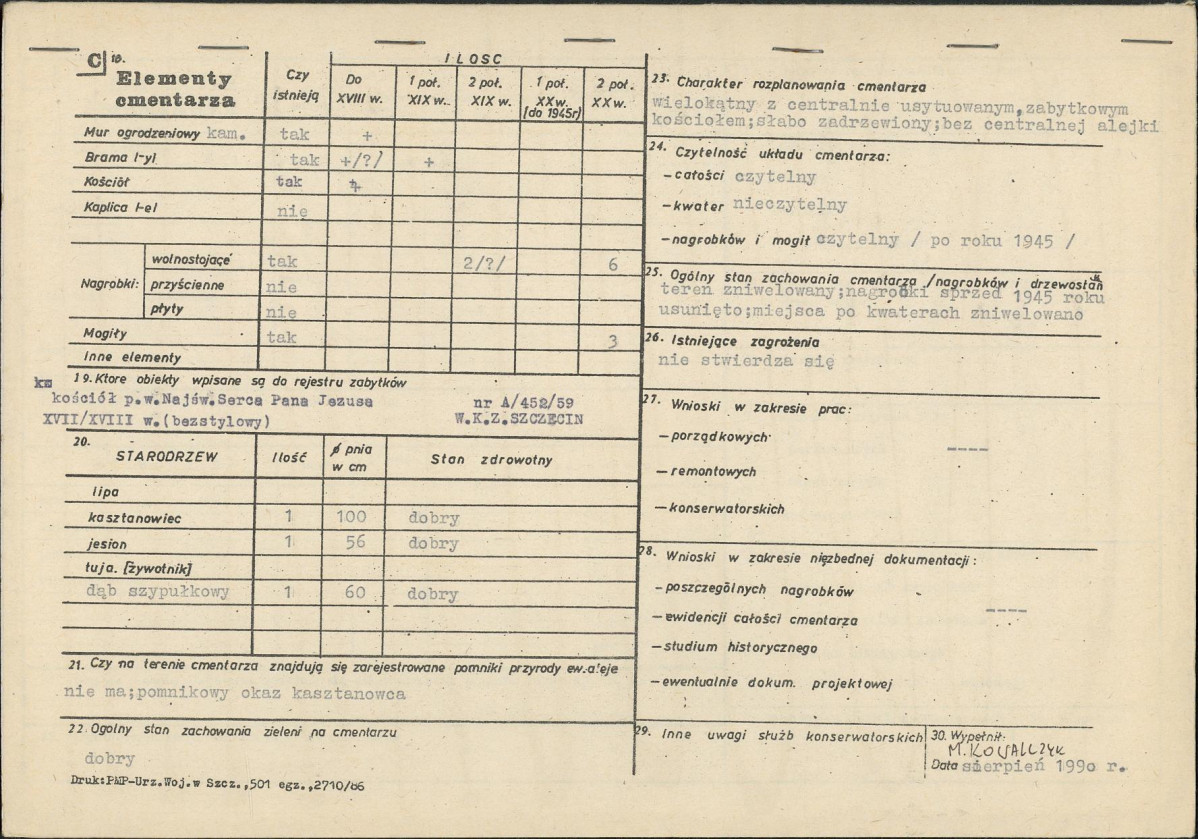 C 18.
Elementy cmentarza
Czy istnieją
ILOSC
Do XVIII w.
1 poł. XIX w.
2 poł. XIX w.
1 poł. XX w. [do 1945r]
2 poł. XX w.
Mur ogrodzeniowy kam. tak +
Brama /-y/ tak +/?/ +
Kościół tak +
Kaplica /-e/ nie
Nagrobki:
wolnostojące tak 2/?/ 6
przyścienne nie
płyty nie
Mogiły tak 3
Inne elementy
19. Ktore obiekty wpisane są do rejestru zabytków
kościół p.w.Najśw.Serca Pana Jezusa nr A/452/59
XVII/XVIII w.(bezstylowy) W.K.Z.SZCZECIN
20.
STARODRZEW Ilość ϕ pnia w cm Stan zdrowotny
lipa
kasztanowiec 1 100 dobry
jesion 1 56 dobry
tuja. [żywotnik]
dąb szypułkowy 1 60 dobry
21. Czy na terenie cmentarza znajdują się zarejestrowane pomniki przyrody ew.aleje
nie ma;pomnikowy okaz kasztanowca
22. Ogolny stan zachowania zieleni na cmentarzu
dobry
Druk:PMP-Urz.Woj.w Szcz.,501 egz.,2710/86
23. Charakter rozplanowania cmentarza
wielokątny z centralnie usytuowanym,zabytkowym
kościołem;słabo zadrzewiony;bez centralnej alejki
24. Czytelność układu cmentarza:
-całości czytelny
-kwater nieczytelny
-nagrobków i mogił czytelny / po roku 1945 /
25. Ogólny stan zachowania cmentarza /nagrobków i drzewostan
teren zniwelowany;nagrobki sprzed 1945 roku
usunięto;miejsca po kwaterach zniwelowano
26. Istniejące zagrożenia
nie stwierdza się
27. Wnioski w zakresie prac:
-porządkowych
----
-remontowych
-konserwatorskich
28. Wnioski w zakresie niezbednej dokumentacji:
-poszczególnych nagrobków
----
-ewidencji całości cmentarza
-studium historycznego
-ewentualnie dokum. projektowej
29. Inne uwagi służb konserwatorskich
30. Wypełnił:
M. KOWALCZYK
Data sierpień 1990 r.